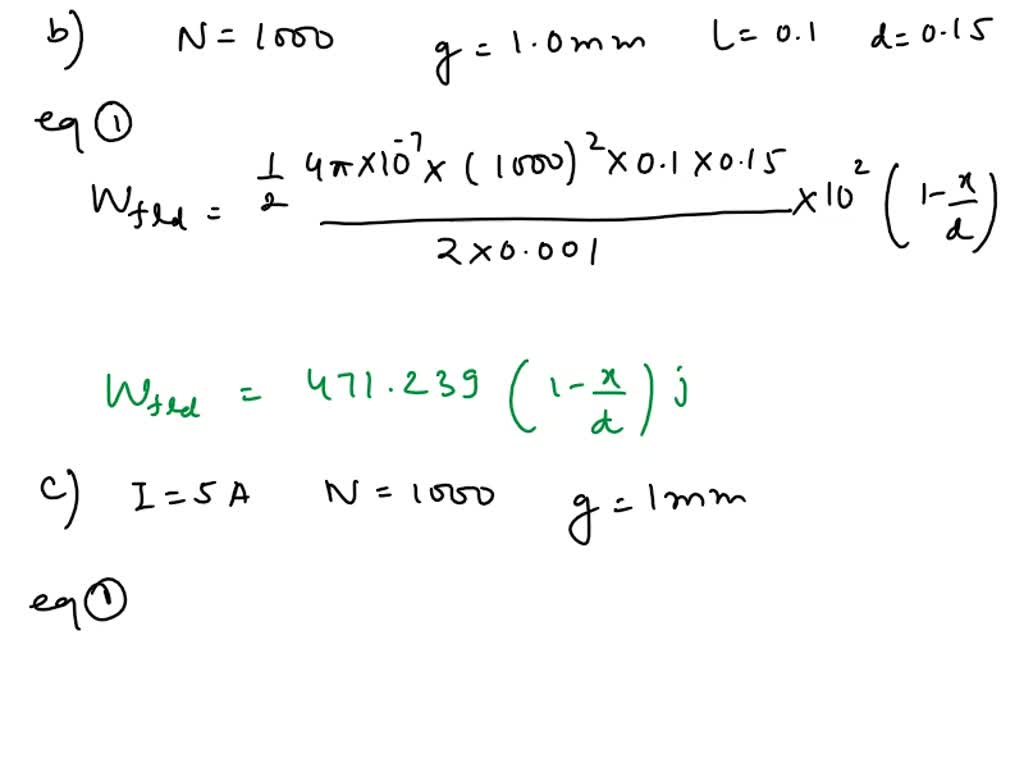 b) N = 1000 g = 1.0mm L = 0.1 d = 0.15
eq ①
W_fld = 1/2 4π×10^-7 × (1000)^2 × 0.1 × 0.15 / 2×0.001 × 10^2 (1 - x/d)
W_fld = 471.239 (1 - x/d) j
c) I = 5A N = 1000 g = 1mm
eq ①